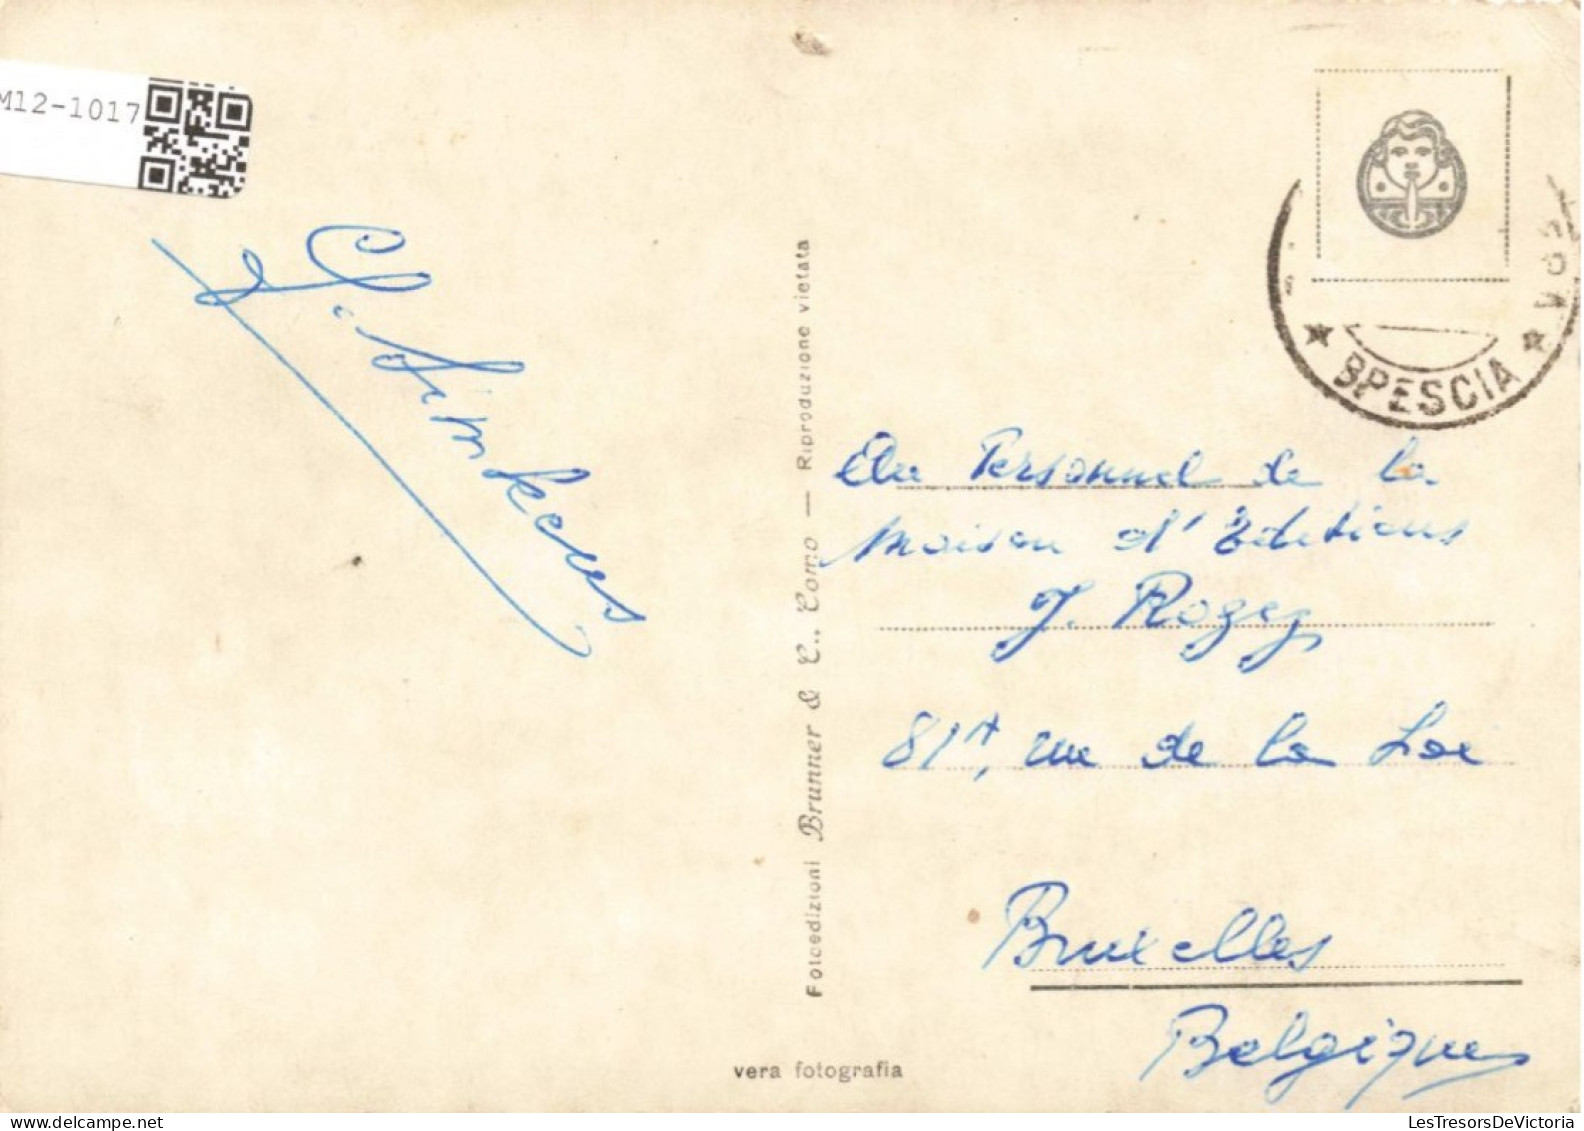 M12-1017
BRESCIA
Fotoedizioni Brunner & C., Como — Riproduzione vietata
Au Personnel de la
Maison d'Editions
J. Rozez
81A, rue de la Loi
Bruxelles
Belgique
vera fotografia
LesTresorsDeVictoria